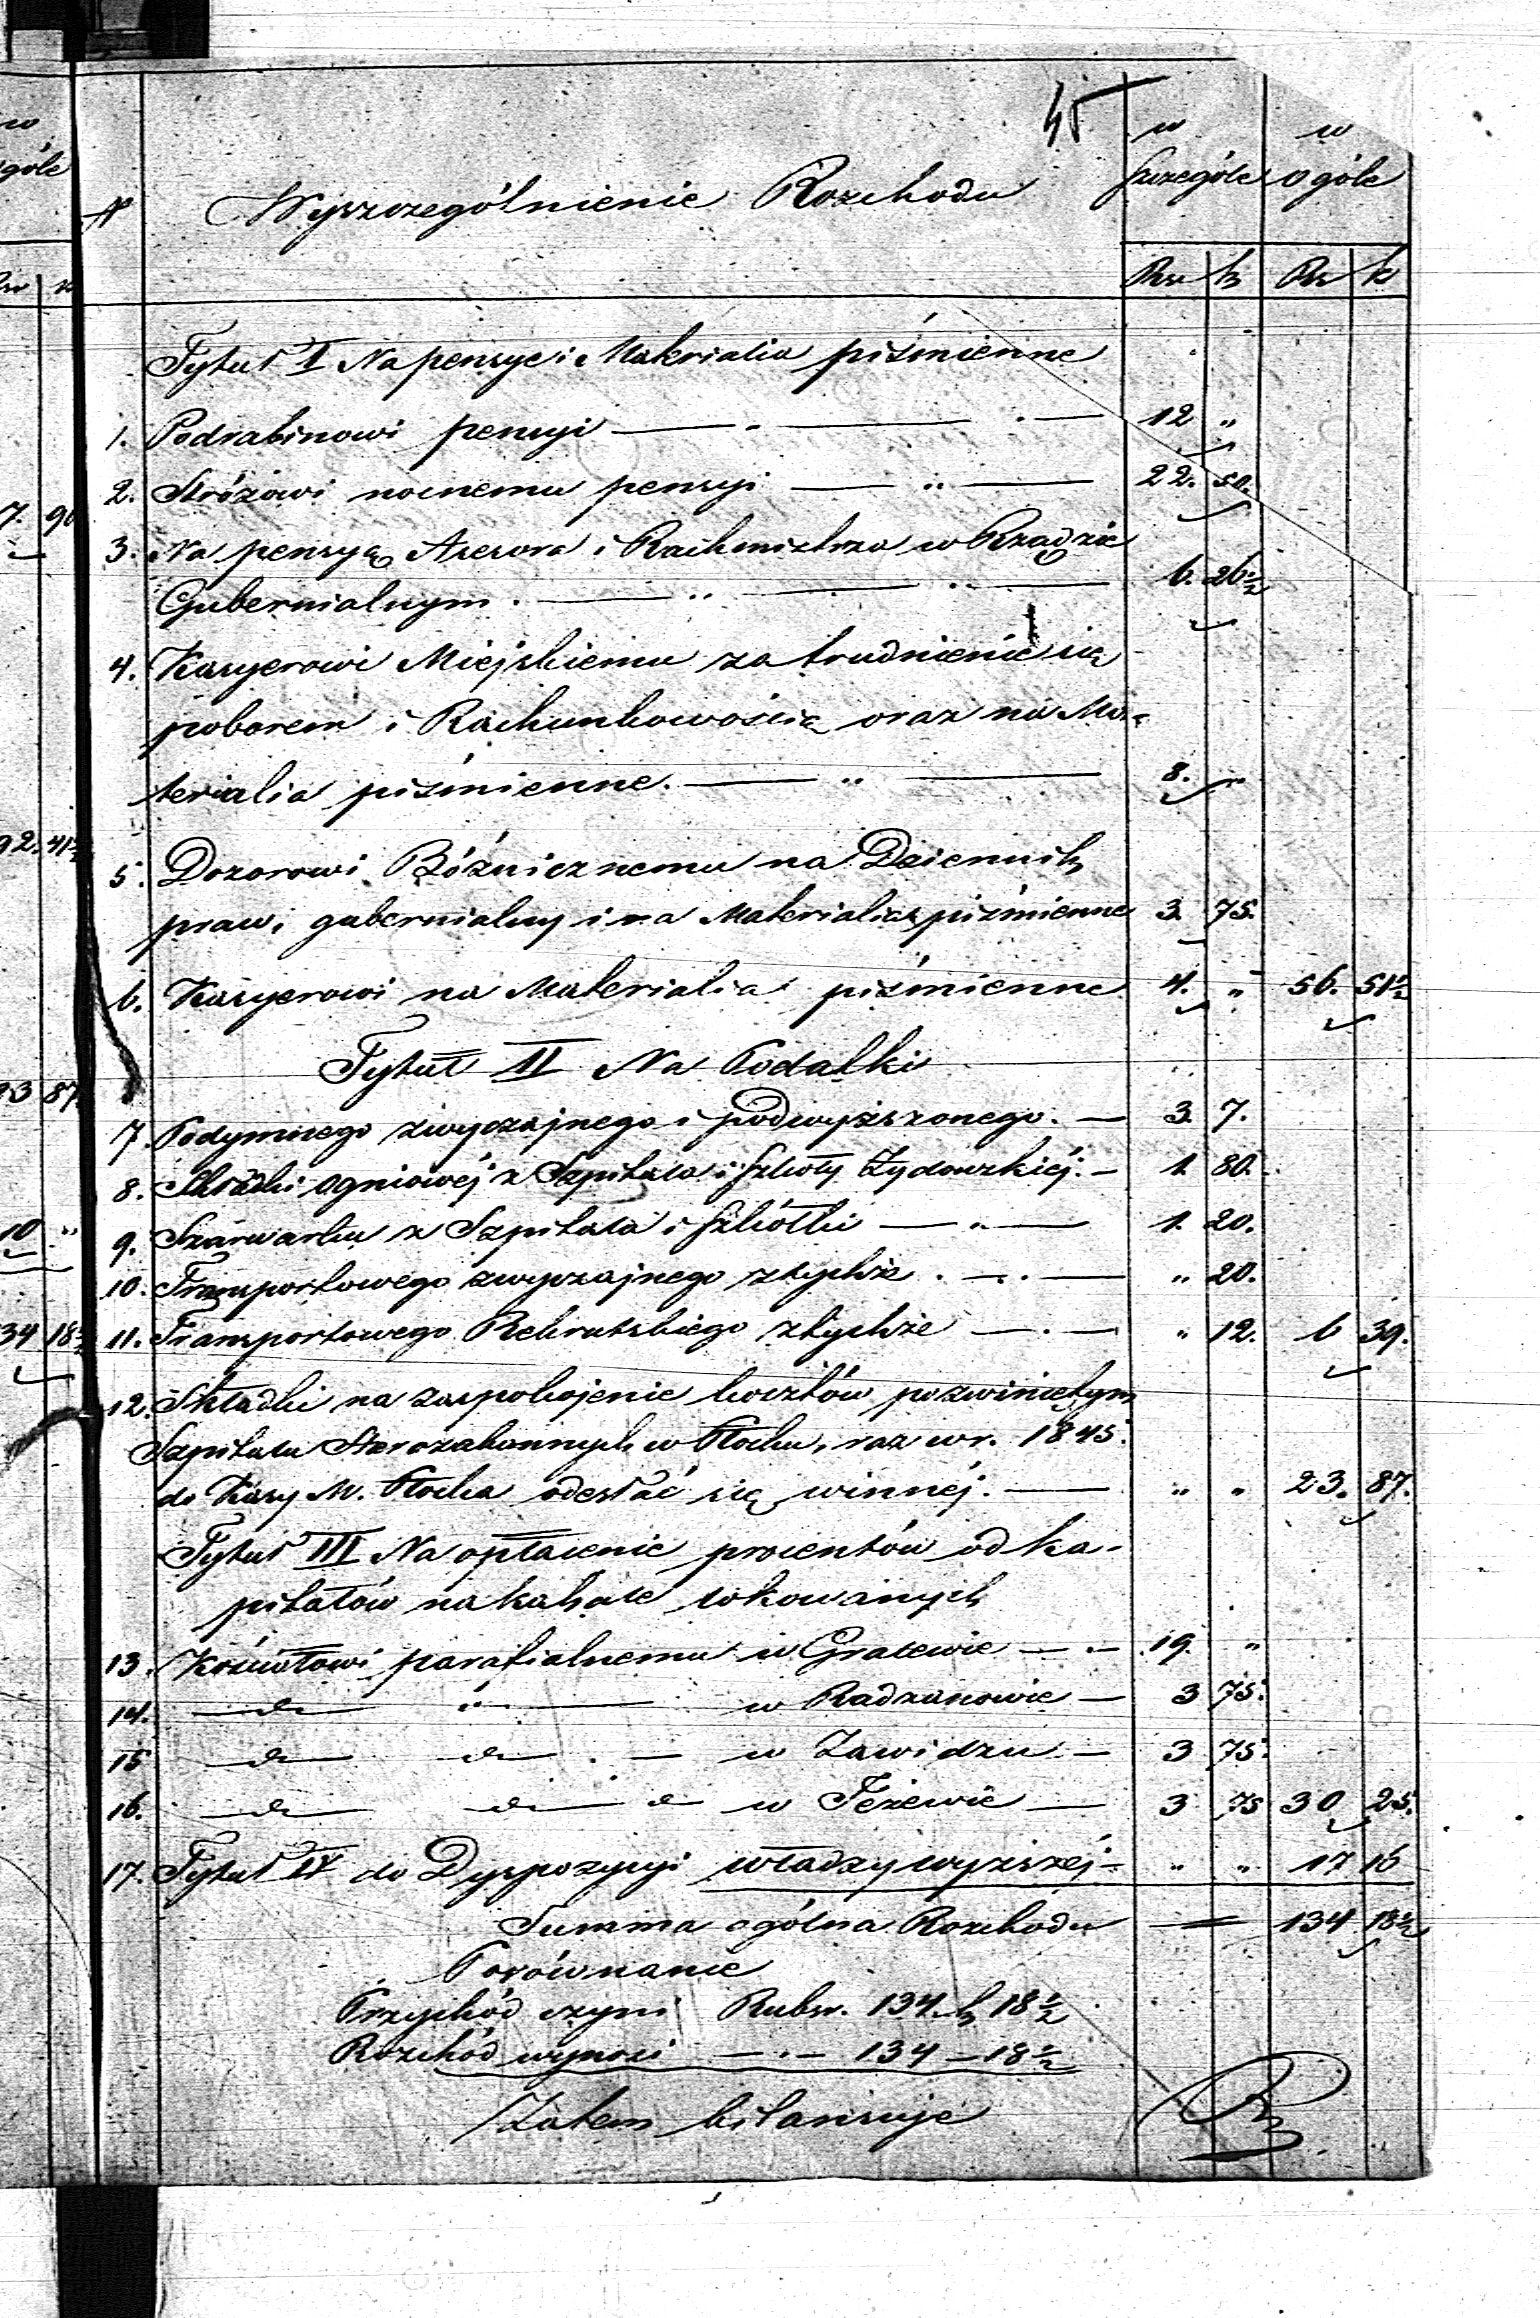 45
w
góle
w Szczególe
w ogóle
N Wyszczególnienie Rozchodu
Rsr k Rsr k
Tytuł I Na pensye i Materialia piśmienne
1. Podrabinowi pensyi — " — 12 "
2. Stróżowi nocnemu pensyi — " — 22. 50.
7. 90
3. Na pensyą Asesora i Rachmistrza w Rządzie
Gubernialnym. — " — " — 6. 26½
4. Kasyerowi Miejskiemu za trudnienie się
poborem i Rachunkowością oraz na Ma-
terialia piśmienne. — " — 8. "
92. 41½
5. Dozorowi Bóżnicznemu na Dziennik
praw, gubernialny i na Materialia piśmienne 3. 75.
6. Kasyerowi na Materialia piśmienne 4. " 56. 51½
Tytuł II Na Podatki
23 87.
7. Podymnego zwyczajnego i podwyższonego. — 3. 7.
8. Składki ogniowéj z Szpitala i Szkoły Żydowskiéj. — 1. 80.
10 "
9. Szarwarku z Szpitala i Szkółki — " — 1. 20.
10. Transportowego zwyczajnego ztychże. — . — " 20.
34 18½
11. Transportowego Rekrutskiego ztychże — . — " 12. 6 39.
12. Składki na zaspokojenie kosztów pozwiniętym
Szpitalu Starozakonnych w Płocku, raz w r. 1845.
do Kasy M. Płocka odesłać się winnéj. — " " 23. 87.
Tytuł III Na opłacenie procentów od ka-
pitałów na kahale lokowanych
13. Kościołowi parafialnemu w Gralewie — " — 19. "
14. — d — " — w Radzanowie — 3 75.
15 — d — d — . — w Zawidzu — 3 75.
16. — d — d — d — w Jeżewie — 3 75 30 25.
17. Tytuł IV do Dyspozycyi władzy wyższéj — " " 17 16
Summa ogólna Rozchodu — 134 18½
Porównanie
Przychód czyni Rubsr. 134. k 18½
Rozchód wynosi — . — 134 — 18½
Zatem bilansuje